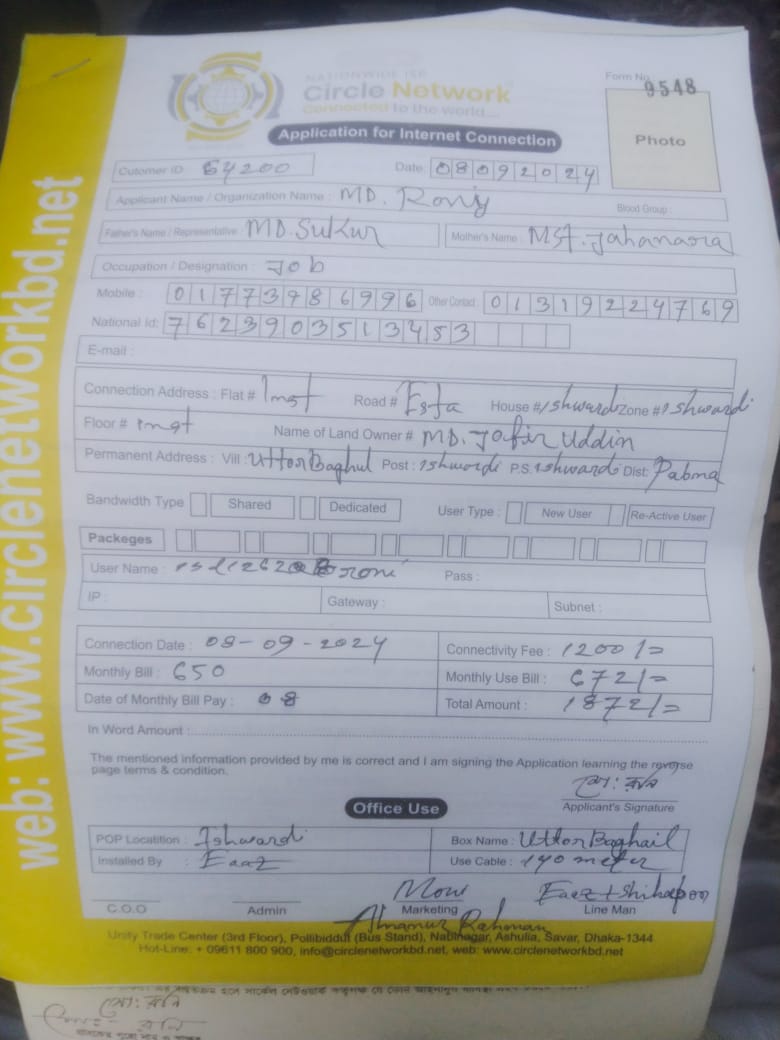 NATIONWIDE ISP
Circle Network
Connected to the world...
Form No. 9548
Application for Internet Connection
Photo
Cutomer ID: 64200 Date: 08092024
Applicant Name / Organization Name : MD. Rony Blood Group :
Father's Name / Representative MD. Sukur Mother's Name : MSt. Jahanara
Occupation / Designation : Job
Mobile : 01773986996 Other Contact : 01319224769
National Id: 7623903513453
E-mail :
Connection Address : Flat # Road # House # Ishwardi Zone # Ishwardi
Floor # Name of Land Owner # MD. Uddin
Permanent Address : Vill : Uttor Baghul Post : Ishwardi P.S. Ishwardi Dist: Pabna
Bandwidth Type Shared Dedicated User Type : New User Re-Active User
Packeges
User Name : Pass :
IP : Gateway : Subnet :
Connection Date : 08-09-2024 Connectivity Fee : 1200/=
Monthly Bill : 650 Monthly Use Bill : 672/=
Date of Monthly Bill Pay : 08 Total Amount : 1872/=
In Word Amount :
The mentioned information provided by me is correct and I am signing the Application learning the reverse
page terms & condition.
মো: রনি
Applicant's Signature
Office Use
POP Locatition : Ishwardi Box Name : Uttor Baghail
Installed By : Eaaz Use Cable : 140 meter
C.O.O Admin Marketing Line Man
Rahman
Unity Trade Center (3rd Floor), Pollibiddut (Bus Stand), Nabinagar, Ashulia, Savar, Dhaka-1344
Hot-Line: + 09611 800 900, info@circlenetworkbd.net, web: www.circlenetworkbd.net
web: www.circlenetworkbd.net
মো: রনি
রনি